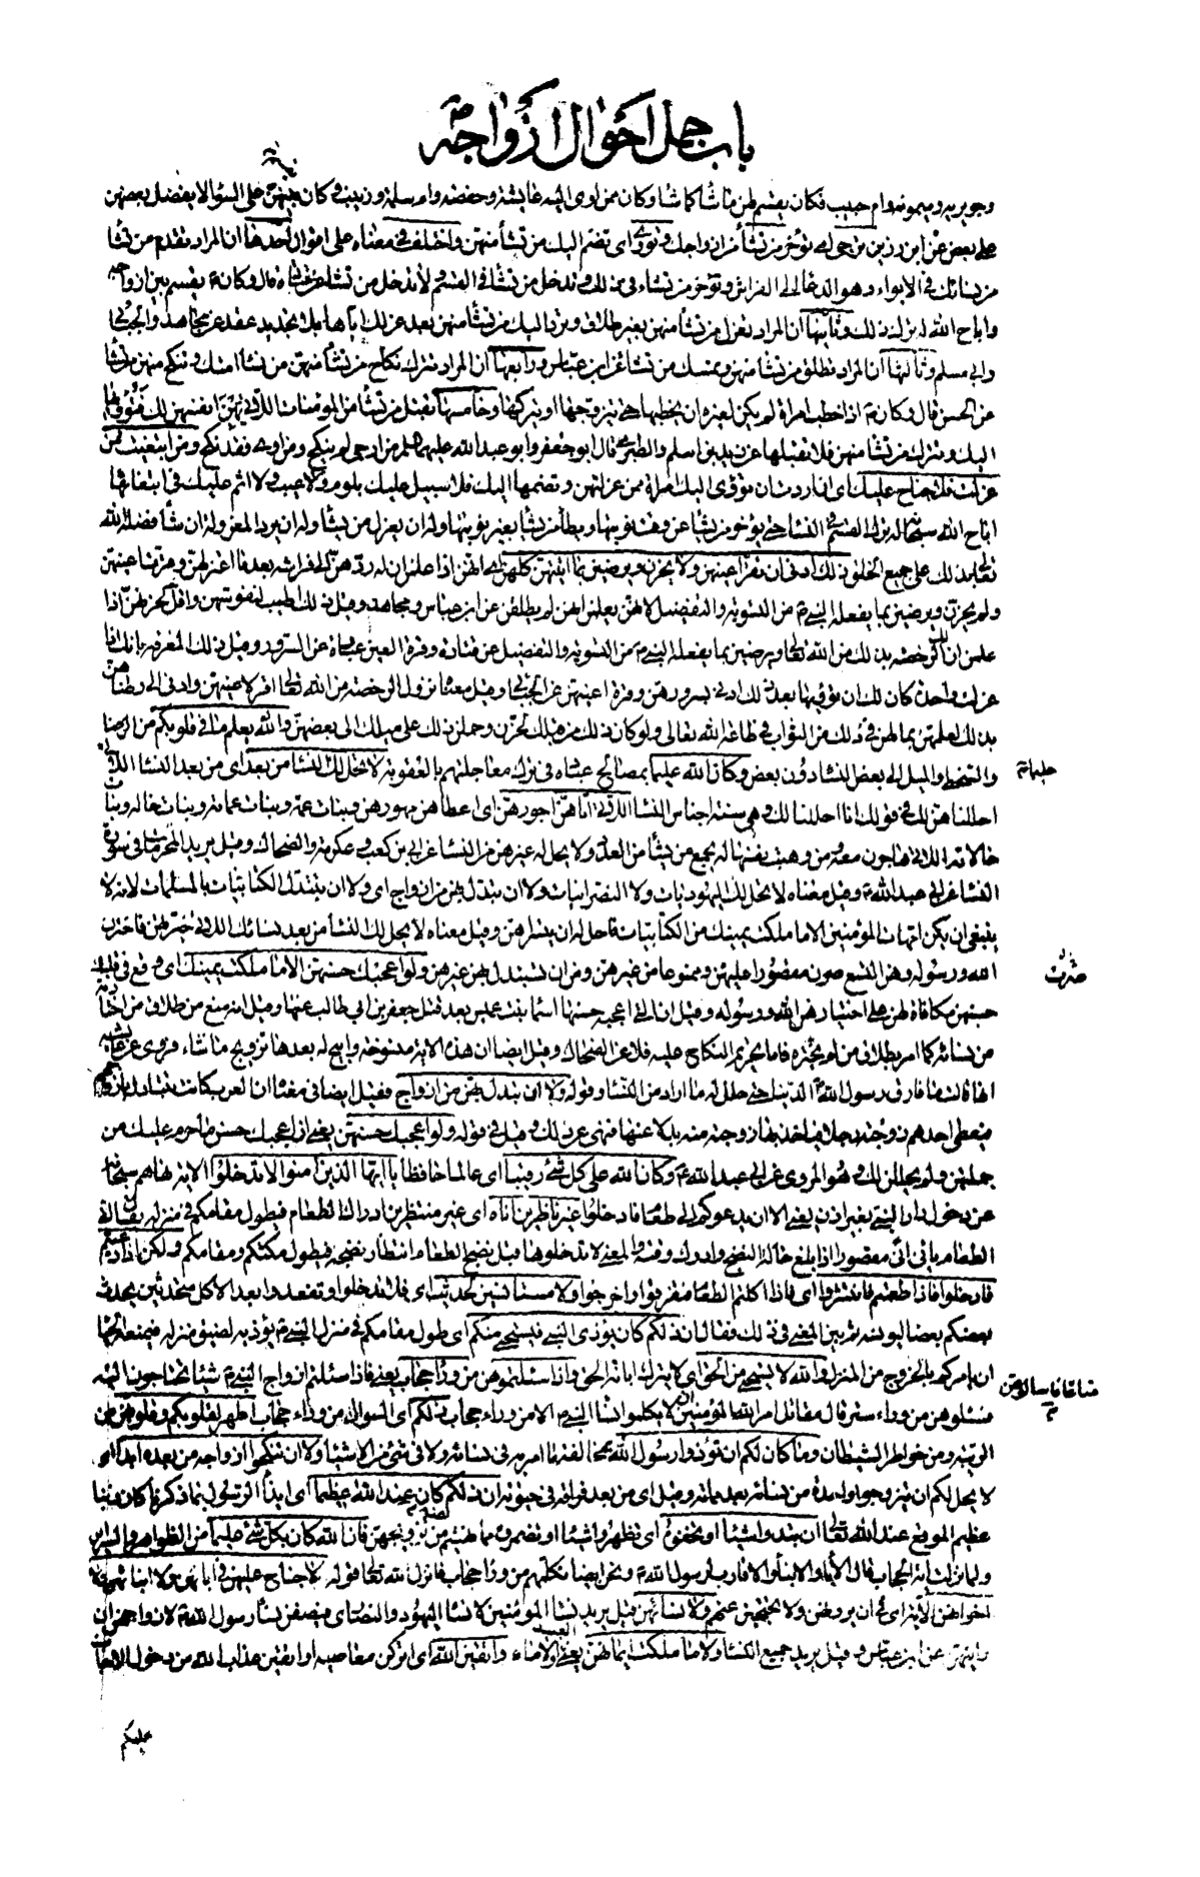 باب جمل احوال ازواجه ص
وجويرية وميمونة وام حبيب فكان يقسم لهن ما شاء كما شاء وكان ممن اوى اليه عايشة وحفصة وام سلمة وزينب وكان يقسم بينهن على السواء لا يفضل بعضهن
على بعض عن ابن رزين ترجى اى تؤخر من تشاء من ازواجك وتؤوى اى تضم اليك من تشاء منهن واختلف فى معناه على اقوال احدها ان المراد تقدم من تشاء
من نسائك فى الايواء وهو الدعاء الى الفراش وتؤخر من تشاء فى ذلك وتدخل من تشاء فى القسم ولا تدخل من تشاء عن قتادة قال وكان ص يقسم بين ازواجه
واباح الله له ترك ذلك وثانيها ان المراد تعزل من تشاء منهن بغير طلاق وترد اليك من تشاء منهن بعد عزلك اياها بلا تجديد عقد عن مجاهد والجبائى
وابى مسلم وثالثها ان المراد تطلق من تشاء منهن وتمسك من تشاء عن ابن عباس ورابعها ان المراد تترك نكاح من تشاء منهن من نساء امتك وتنكح منهن من تشاء
عن الحسن قال وكان ص اذا خطب امراة لم يكن لغيره ان يخطبها حتى يتزوجها او يتركها وخامسها تقبل من تشاء من المؤمنات اللاتى يهبن انفسهن لك فتؤويها
اليك وتترك من تشاء منهن فلا تقبلها عن زيد بن اسلم والطبرى قال ابو جعفر وابو عبد الله عليهما السلم من ارجى لم ينكح ومن اوى فقد نكح ومن ابتغيت ممن
عزلت فلا جناح عليك اى ان اردت ان تؤوى اليك امراة ممن عزلتهن وتضمها اليك فلا سبيل عليك بلوم ولا عيب ولا اثم عليك فى ابتغائها
اباح الله سبحانه له ترك القسم فى النساء حتى يؤخر من يشاء عن وقت نوبتها ويطأ من يشاء بغير نوبتها وله ان يعزل من يشاء وله ان يرد المعزولة ان شاء فضله الله
تعالى بذلك على جميع الخلق ذلك ادنى ان تقر اعينهن ولا يحزن ويرضين بما اتيتهن كلهن اى انهن اذا علمن ان له ردهن الى فراشه بعد ما اعتزلهن قرت اعينهن
ولم يحزن ويرضين بما يفعله النبى ص من التسوية والتفضيل لانهن يعلمن انهن لم يطلقن عن ابن عباس ومجاهد وقيل ذلك اطيب لنفوسهن واقل لحزنهن اذا
علمن ان لك الرخصة بذلك من الله تعالى ويرضين بما يفعله النبى ص من التسوية والتفضيل عن قتادة وقرة العين عبارة عن السرور وقيل ذلك المعرفة بانك اذا
عزلت واحدة كان لك ان تؤويها بعد ذلك ادنى بسرورهن وقرة اعينهن عن الجبائى وقيل معناه نزول الرخصة من الله تعالى اقر لاعينهن وادنى الى رضاهن
بذلك لعلمهن بما لهن فى ذلك من الثواب فى طاعة الله تعالى ولو كان ذلك من قبلك لحزن وحملن ذلك على ميلك الى بعضهن والله يعلم ما فى قلوبكم من الرضا
والتسخط والميل الى بعض النساء دون بعض وكان الله عليما بمصالح عباده فى ترك معاجلتهم بالعقوبة لا يحل لك النساء من بعد اى من بعد النساء اللاتى
حليما ص
احللناهن لك فى قولك انا احللنا لك وهى ستة اجناس النساء اللاتى اتاهن اجورهن اى اعطاهن مهورهن وبنات عمه وبنات عماته وبنات خاله وبنات
خالاته اللاتى هاجرن معه ومن وهبت نفسها له يجمع من يشاء من العدد ولا يحل له غيرهن من النساء عن ابى بن كعب وعكرمة والضحاك وقيل يريد المحرمات فى سورة
النساء عن ابى عبد الله ع وقيل معناه لا يحل لك اليهوديات ولا النصرانيات ولا ان تبدل بهن من ازواج اى ولا ان تتبدل الكتابيات بالمسلمات لانه لا
ينبغى ان يكن امهات المؤمنين الا ما ملكت يمينك من الكتابيات فاحل له ان يتسراهن وقيل معناه لا يحل لك النساء من بعد نسائك اللاتى خيرتهن فاخترن
الله ورسوله وهن التسع صرن مقصورا عليهن وممنوعا من غيرهن ومن ان تستبدل بهن غيرهن ولو اعجبك حسنهن الا ما ملكت يمينك اى وقع فى قلبك
حسنهن مكافاة لهن على اختيارهن الله ورسوله وقيل ان التى اعجبه حسنها اسماء بنت عميس بعد قتل جعفر بن ابى طالب عنها وقيل انه منع من طلاق من اختار
من نسائه كما امر بطلاق من لم يختره فاما تحريم النكاح عليه فلا عن الضحاك وقيل ايضا ان هذه الاية منسوخة وابيح له بعدها تزويج ما شاء فروى عن عايشة
انها قالت ما فارق رسول الله ص الدنيا حتى حلل له ما اراد من النساء وقوله ولا ان تبدل بهن من ازواج فقيل ايضا فى معناه ان العرب كانت تتبادل بازواجهم
فيعطى احدهم زوجته رجلا فياخذ بها زوجته منه بدلا عنها فنهى عن ذلك وقيل فى قوله ولو اعجبك حسنهن يعنى ان اعجبك حسن ما حرم عليك من
جملتهن ولم يحللن لك وهو المروى عن ابى عبد الله ع وكان الله على كل شئ رقيبا اى عالما حافظا يا ايها الذين امنوا لا تدخلوا الاية نهاهم سبحانه
عن دخول دار النبى بغير اذن يعنى الا ان يدعوكم الى طعام فادخلوا غير ناظرين اناه اى غير منتظرين ادراك الطعام فيطول مقامكم فى منزله يقال انى
الطعام يانى انى مقصورا اذا بلغ حالة النضج وادرك وقته والمعنى لا تدخلوها قبل نضج الطعام وانتظار نضجه فيطول مكثكم ومقامكم ولكن اذا دعيتم
فادخلوا فاذا طعمتم فانتشروا اى فاذا اكلتم الطعام فتفرقوا واخرجوا ولا مستانسين لحديث اى فلا تدخلوا وتقعدوا بعد الاكل متحدثين يحدث
بعضكم بعضا ليؤنسه ثم بين المعنى فى ذلك فقال ان ذلكم كان يؤذى النبى فيستحيى منكم اى طول مقامكم فى منزل النبى ص يؤذيه لضيق منزله فيمنعه الحياء
ان يامركم بالخروج من المنزل والله لا يستحيى من الحق اى لا يترك ابانة الحق واذا سئلتموهن من وراء حجاب يعنى فاذا سئلتم ازواج النبى ص شيئا تحتاجون اليه
متاعا فاسالوهن ص
فسئلوهن من وراء ستر قال مقاتل امر الله المؤمنين ان لا يكلموا نساء النبى ص الا من وراء حجاب ذلكم اى السؤال من وراء حجاب اطهر لقلوبكم وقلوبهن من
الريبة ومن خواطر الشيطان وما كان لكم ان تؤذوا رسول الله بمخالفة ما امر به فى نسائه ولا فى شئ من الاشياء ولا ان تنكحوا ازواجه من بعده ابدا اى
لا يحل لكم ان تتزوجوا واحدة من نسائه بعد مماته وقيل اى من بعد فراقه فى حيوته ان ذلكم كان عند الله عظيما اى ايذاء الرسول بما ذكرنا كان ذنبا
عظيم الموقع عند الله تعالى ان تبدوا شيئا او تخفوه اى تظهروا شيئا او تضمروه مما نهيتم من تزويجهن فان الله كان بكل شئ عليما من الظواهر والسراير
ولما نزلت اية الحجاب قال الاباء والابناء والاقارب لرسول الله ص ونحن ايضا نكلمهم من وراء حجاب فانزل الله تعالى قوله لا جناح عليهن فى ابائهن ولا ابنائهن ولا
اخوانهن الاية اى فى ان يروهن ولا يحتجبن عنهم ولا نسائهن قيل يريد نساء المؤمنين لا نساء اليهود والنصارى فيصفن نساء رسول الله ص لازواجهن ان
راينهن عن ابن عباس وقيل يريد جميع النساء ولا ما ملكت ايمانهن يعنى العبيد والاماء واتقين الله اى اتركن معاصيه او اتقين عذاب الله من دخول الاجانب
عليكم